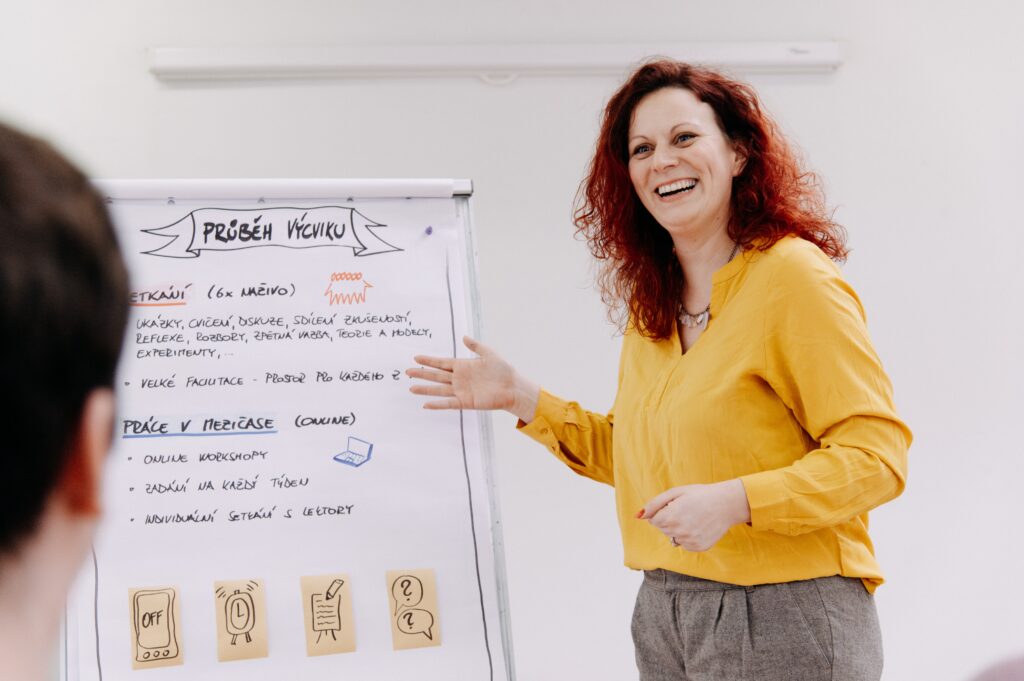 PRŮBĚH VÝCVIKU
ETKÁNÍ (6x NAŽIVO)
UKÁZKY, CVIČENÍ, DISKUZE, SDÍLENÍ ZKUŠENOSTÍ,
REFLEXE, ROZBORY, ZPĚTNÁ VAZBA, TEORIE A MODELY,
EXPERIMENTY, ...
• VELKÉ FACILITACE - PROSTOR PRO KAŽDÉHO Z
PRÁCE V MEZIČASE (ONLINE)
• ONLINE WORKSHOPY
• ZADÁNÍ NA KAŽDÝ TÝDEN
• INDIVIDUÁLNÍ SETKÁNÍ S LEKTORY
OFF
? ?